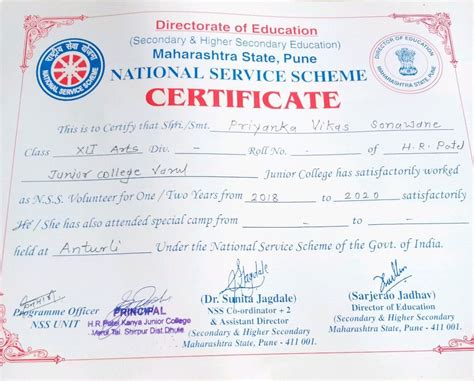 Directorate of Education
(Secondary & Higher Secondary Education)
Maharashtra State, Pune
राष्ट्रीय सेवा योजना
NATIONAL SERVICE SCHEME
DIRECTOR OF EDUCATION
MAHARASHTRA STATE, PUNE
NATIONAL SERVICE SCHEME
CERTIFICATE
This is to Certify that Shri./Smt. Priyanka Vikas Sonawane
Class XII Arts Div. - Roll No. - of H.R. Patel
Junior college Varul Junior College has satisfactorily worked
as N.S.S. Volunteer for One / Two Years from 2018 to 2020 satisfactorily
He / She has also attended special camp from - to -
held at Anturli Under the National Service Scheme of the Govt. of India.
Programme Officer
NSS UNIT
PRINCIPAL
H.R.Patel Kanya Junior College
Tal. Shirpur Dist. Dhule
Jagdale
(Dr. Sunita Jagdale)
NSS Co-ordinator + 2
& Assistant Director
(Secondary & Higher Secondary
Maharashtra State, Pune - 411 001.
(Sarjerao Jadhav)
Director of Education
(Secondary & Higher Secondary
Maharashtra State, Pune - 411 001.